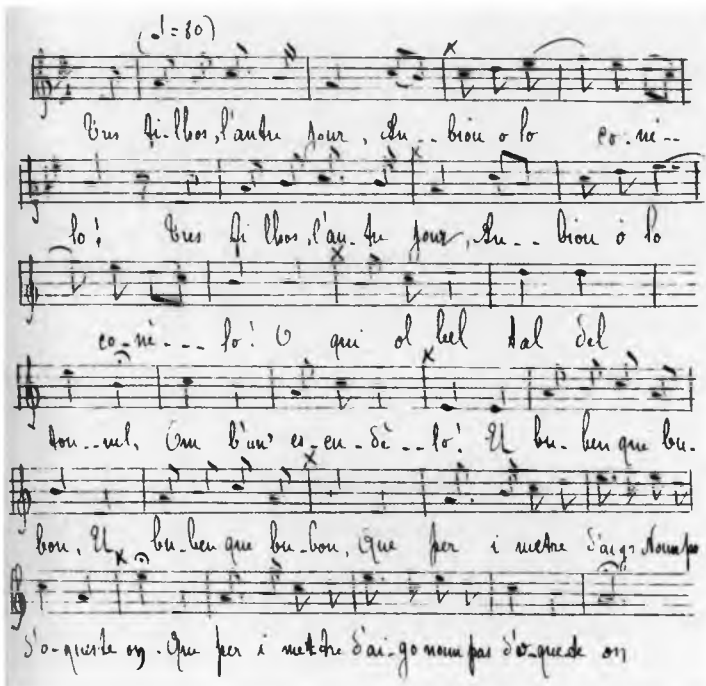 (♩=80)
Tres fi-lhos, l'autre jour, Au--biou o lo co-ni--
lo! Tres fi lhos, l'au-tre jour, Au--biou o lo
co-ni---lo! O qui ol bel tal del
tou--nel, Om l'un' es-cu-dè--lo! El bu-ben que bu-
bon, El bu-ben que bu-bon, Que per i metre d'aigo Noun pas
d'o-queste on. Que per i mettre d'ai-go noun pas d'o-queste on